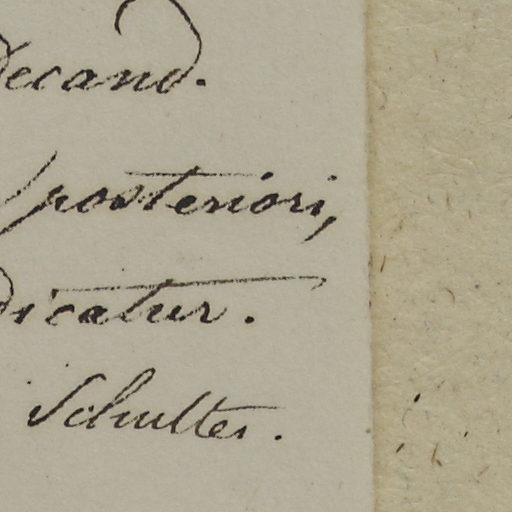 Decand.
posteriori,
dicatur.
Schultes.